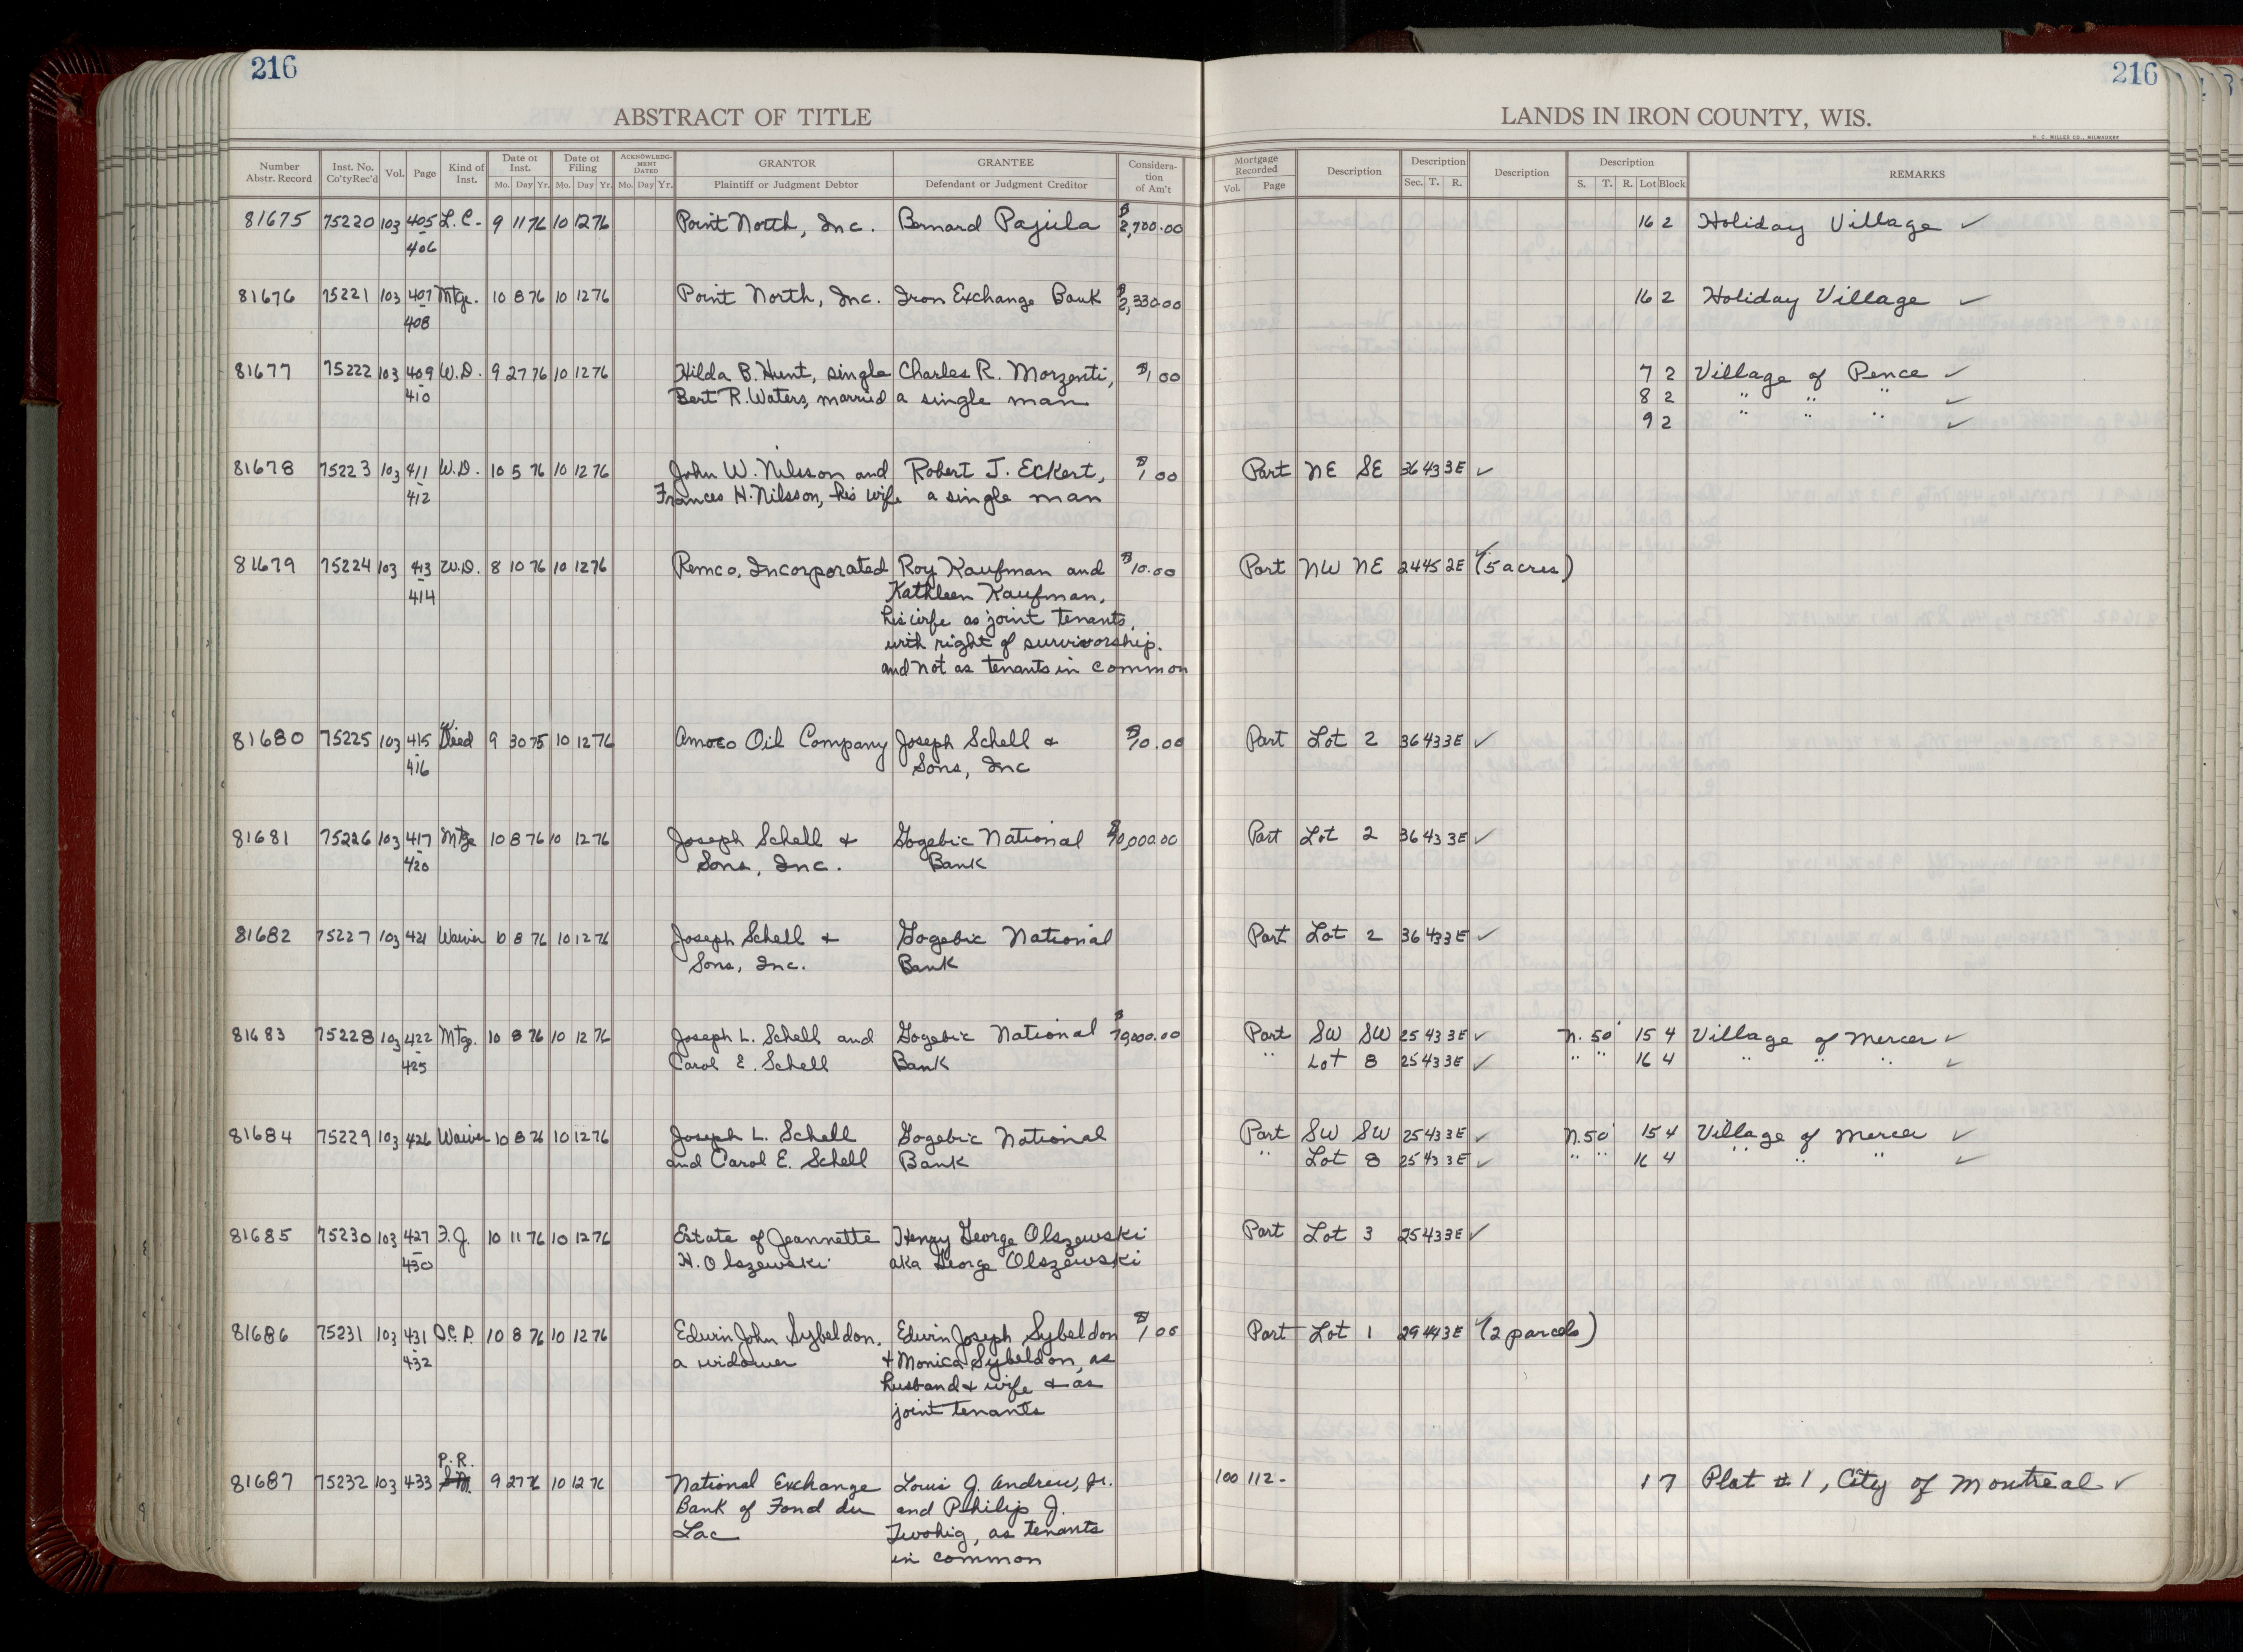 216
216
ABSTRACT OF TITLE
LANDS IN IRON COUNTY, WIS.
H. C. MILLER CO., MILWAUKEE
Number Abstr. Record Inst. No. Co'ty Rec'd Vol. Page Kind of Inst. Date of Inst. Mo. Day Yr. Date of Filing Mo. Day Yr. ACKNOWLEDGMENT DATED Mo. Day Yr. GRANTOR Plaintiff or Judgment Debtor GRANTEE Defendant or Judgment Creditor Consideration of Am't Mortgage Recorded Vol. Page Description Description Sec. T. R. Description Description S. T. R. Lot Block REMARKS
81675 75220 103 405 L.C. 9 11 76 10 12 76 Point North, Inc. Bernard Pajula $2,700.00 16 2 Holiday Village ✓
406
81676 75221 103 407 Mtge. 10 8 76 10 12 76 Point North, Inc. Iron Exchange Bank $2,330.00 16 2 Holiday Village ✓
408
81677 75222 103 409 W.D. 9 27 76 10 12 76 Hilda B. Hunt, single Charles R. Morzenti, $1.00 7 2 Village of Pence ✓
410 Bert R. Waters, married a single man 8 2 " " " ✓
9 2 " " " ✓
81678 75223 103 411 W.D. 10 5 76 10 12 76 John W. Nilsson and Robert J. Eckert, $1.00 Part NE SE 36 43 3E ✓
412 Frances H. Nilsson, his wife a single man
81679 75224 103 413 W.D. 8 10 76 10 12 76 Remco, Incorporated Roy Kaufman and $10.00 Part NW NE 24 45 2E ✓ (5 acres)
414 Kathleen Kaufman,
his wife as joint tenants,
with right of survivorship.
and not as tenants in common
81680 75225 103 415 W. Deed 9 30 75 10 12 76 Amoco Oil Company Joseph Schell & $10.00 Part Lot 2 36 43 3E ✓
416 Sons, Inc
81681 75226 103 417 Mtge 10 8 76 10 12 76 Joseph Schell & Gogebic National $70,000.00 Part Lot 2 36 43 3E ✓
420 Sons, Inc. Bank
81682 75227 103 421 Waiver 10 8 76 10 12 76 Joseph Schell & Gogebic National Part Lot 2 36 43 3E ✓
Sons, Inc. Bank
81683 75228 103 422 Mtge. 10 8 76 10 12 76 Joseph L. Schell and Gogebic National $70,000.00 Part SW SW 25 43 3E ✓ N. 50' 15 4 Village of Mercer ✓
425 Carol E. Schell Bank " Lot 8 25 43 3E ✓ " " 16 4 " " " ✓
81684 75229 103 426 Waiver 10 8 76 10 12 76 Joseph L. Schell Gogebic National Part SW SW 25 43 3E ✓ N. 50' 15 4 Village of Mercer ✓
and Carol E. Schell Bank " Lot 8 25 43 3E ✓ " " 16 4 " " " ✓
81685 75230 103 427 F.J. 10 11 76 10 12 76 Estate of Jeannette Henry George Olszewski Part Lot 3 25 43 3E ✓
430 H. Olszewski aka George Olszewski
81686 75231 103 431 Q.C.D. 10 8 76 10 12 76 Edwin John Sybeldon, Edwin Joseph Sybeldon $1.00 Part Lot 1 29 44 3E ✓ (2 parcels)
432 a widower & Monica Sybeldon, as
husband & wife & as
joint tenants
P.R.
81687 75232 103 433 9 27 76 10 12 76 National Exchange Louis J. Andrew, Jr. 100 112 - 1 7 Plat #1, City of Montreal ✓
Bank of Fond du and Philip J.
Lac Twohig, as tenants
in common